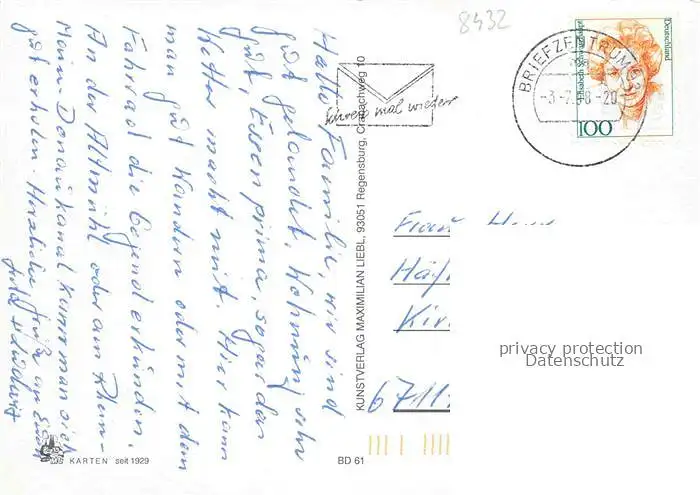 8432
Hallo Familie, wir sind
gut gelandet, Wohnung sehr
gut, Essen prima, sogar das
Wetter macht mit. Hier kann
man gut wandern oder mit dem
Fahrrad die Gegend erkunden.
An der Altmühl oder am Rhein-
Main-Donaukanal kann man sich
gut erholen. Herzliche Grüße an Euch
KUNSTVERLAG MAXIMILIAN LIEBL, 93051 Regensburg, 10
KARTEN seit 1929
BD 61
mal wieder
BRIEFZENTRUM
-3.-7.98-20
Deutschland
100
Frau
6711
privacy protection
Datenschutz